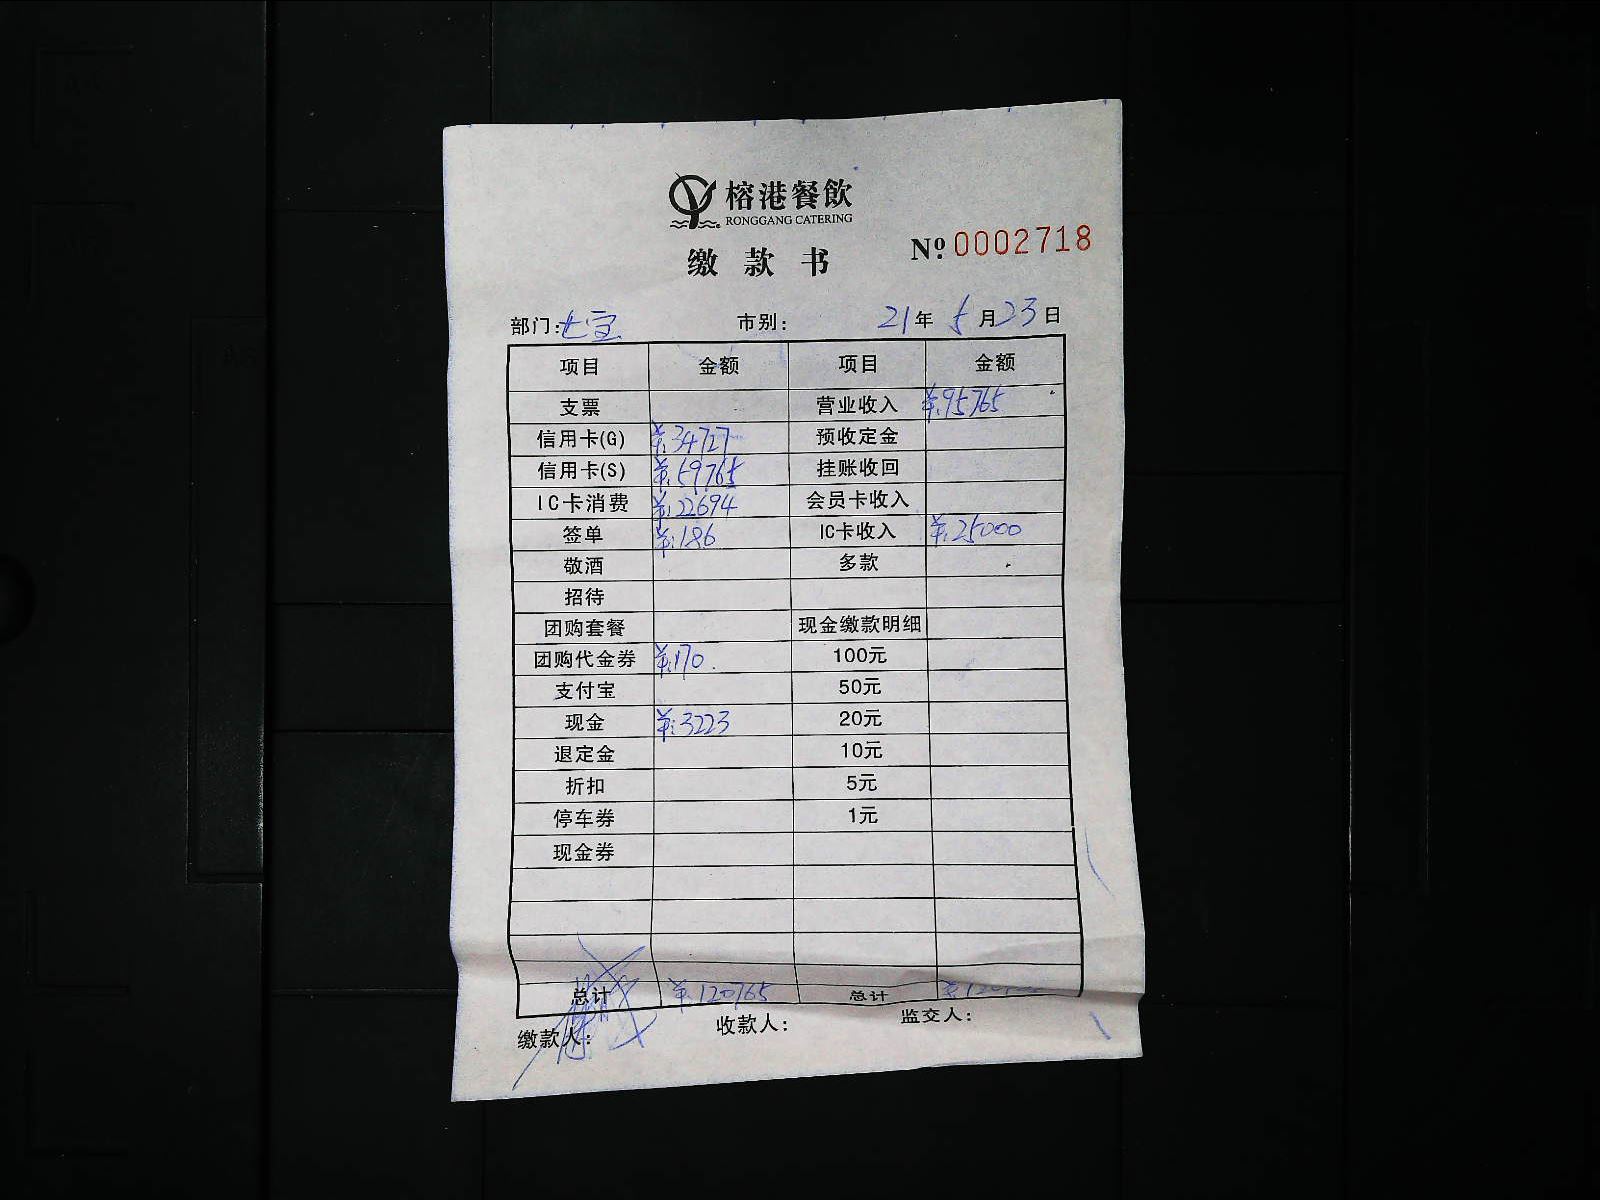 榕港餐飲
RONGGANG CATERING
缴款书
Nº 0002718
部门:七宝 市别: 21年5月23日
项目 金额 项目 金额
支票 营业收入 ¥:95765
信用卡(G) ¥:34727 预收定金
信用卡(S) ¥:59765 挂账收回
IC卡消费 ¥:22694 会员卡收入
签单 ¥:186 IC卡收入 ¥:25000
敬酒 多款
招待
团购套餐 现金缴款明细
团购代金券 ¥:170 100元
支付宝 50元
现金 ¥:3223 20元
退定金 10元
折扣 5元
停车券 1元
现金券
总计 ¥:120765 总计
缴款人: 收款人: 监交人: